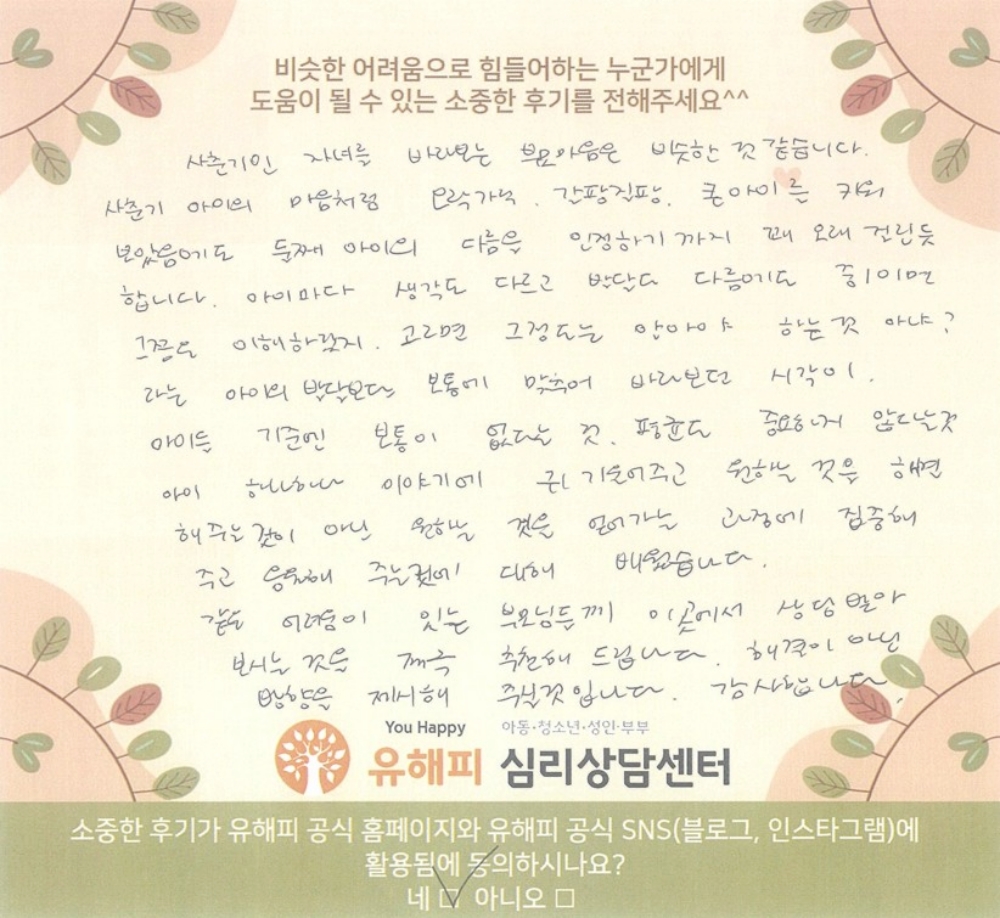 비슷한 어려움으로 힘들어하는 누군가에게
도움이 될 수 있는 소중한 후기를 전해주세요^^
사춘기인 자녀를 바라보는 부모마음은 비슷한 것 같습니다.
사춘기 아이의 마음처럼 오락가락. 갈팡질팡. 큰아이를 키워
보았음에도 둘째 아이의 다름을 인정하기까지 꽤 오래 걸린듯
합니다. 아이마다 생각도 다르고 발달도 다름에도 중1이면
그쯤은 이해하겠지. 고2라면 그정도는 알아야 하는것 아냐?
라는 아이의 발달보다 보통에 맞추어 바라보던 시각이.
아이들 기준엔 보통이 없다는 것. 평균도 중요하지 않다는것
아이 하나하나 이야기에 귀 기울여주고 원하는 것을 해면
해주는것이 아닌 원하는 것을 얻어가는 과정에 집중해
주고 응원해 주는것에 대해 배웠습니다.
같은 어려움이 있는 부모님들께 이곳에서 상담 받아
보시는 것을 적극 추천해 드립니다. 해결이 아닌
방향을 제시해 주실것입니다. 감사합니다.
You Happy 아동·청소년·성인·부부
유해피 심리상담센터
소중한 후기가 유해피 공식 홈페이지와 유해피 공식 SNS(블로그, 인스타그램)에
활용됨에 동의하시나요?
네 □ 아니오 □